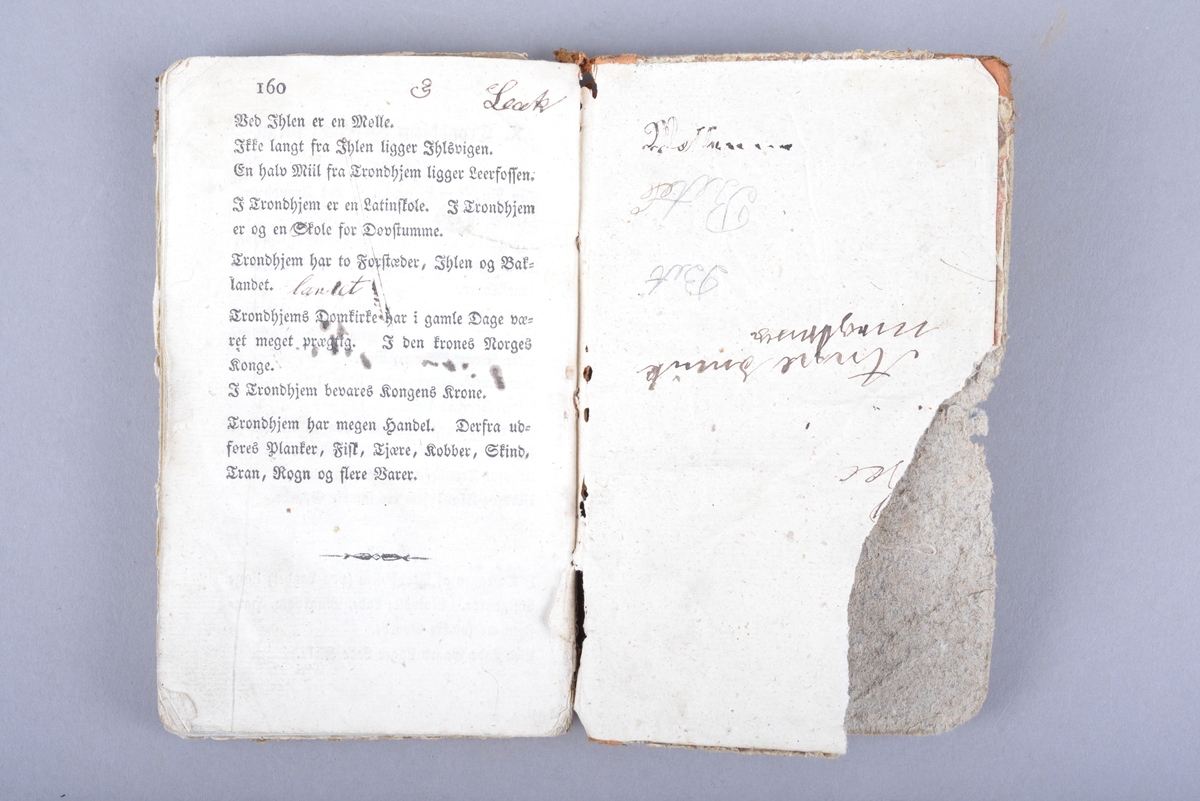 160
Ved Ihlen er en Mølle.
Ikke langt fra Ihlen ligger Ihlsvigen.
En halv Miil fra Trondhjem ligger Leerfossen.
I Trondhjem er en Latinskole. I Trondhjem
er og en Skole for Døvstumme.
Trondhjem har to Forstæder, Ihlen og Bak-
landet. landet
Trondhjems Domkirke har i gamle Dage væ-
ret meget prægtig. I den krones Norges
Konge.
I Trondhjem bevares Kongens Krone.
Trondhjem har megen Handel. Derfra ud-
føres Planker, Fisk, Tjære, Kobber, Skind,
Tran, Rogn og flere Varer.